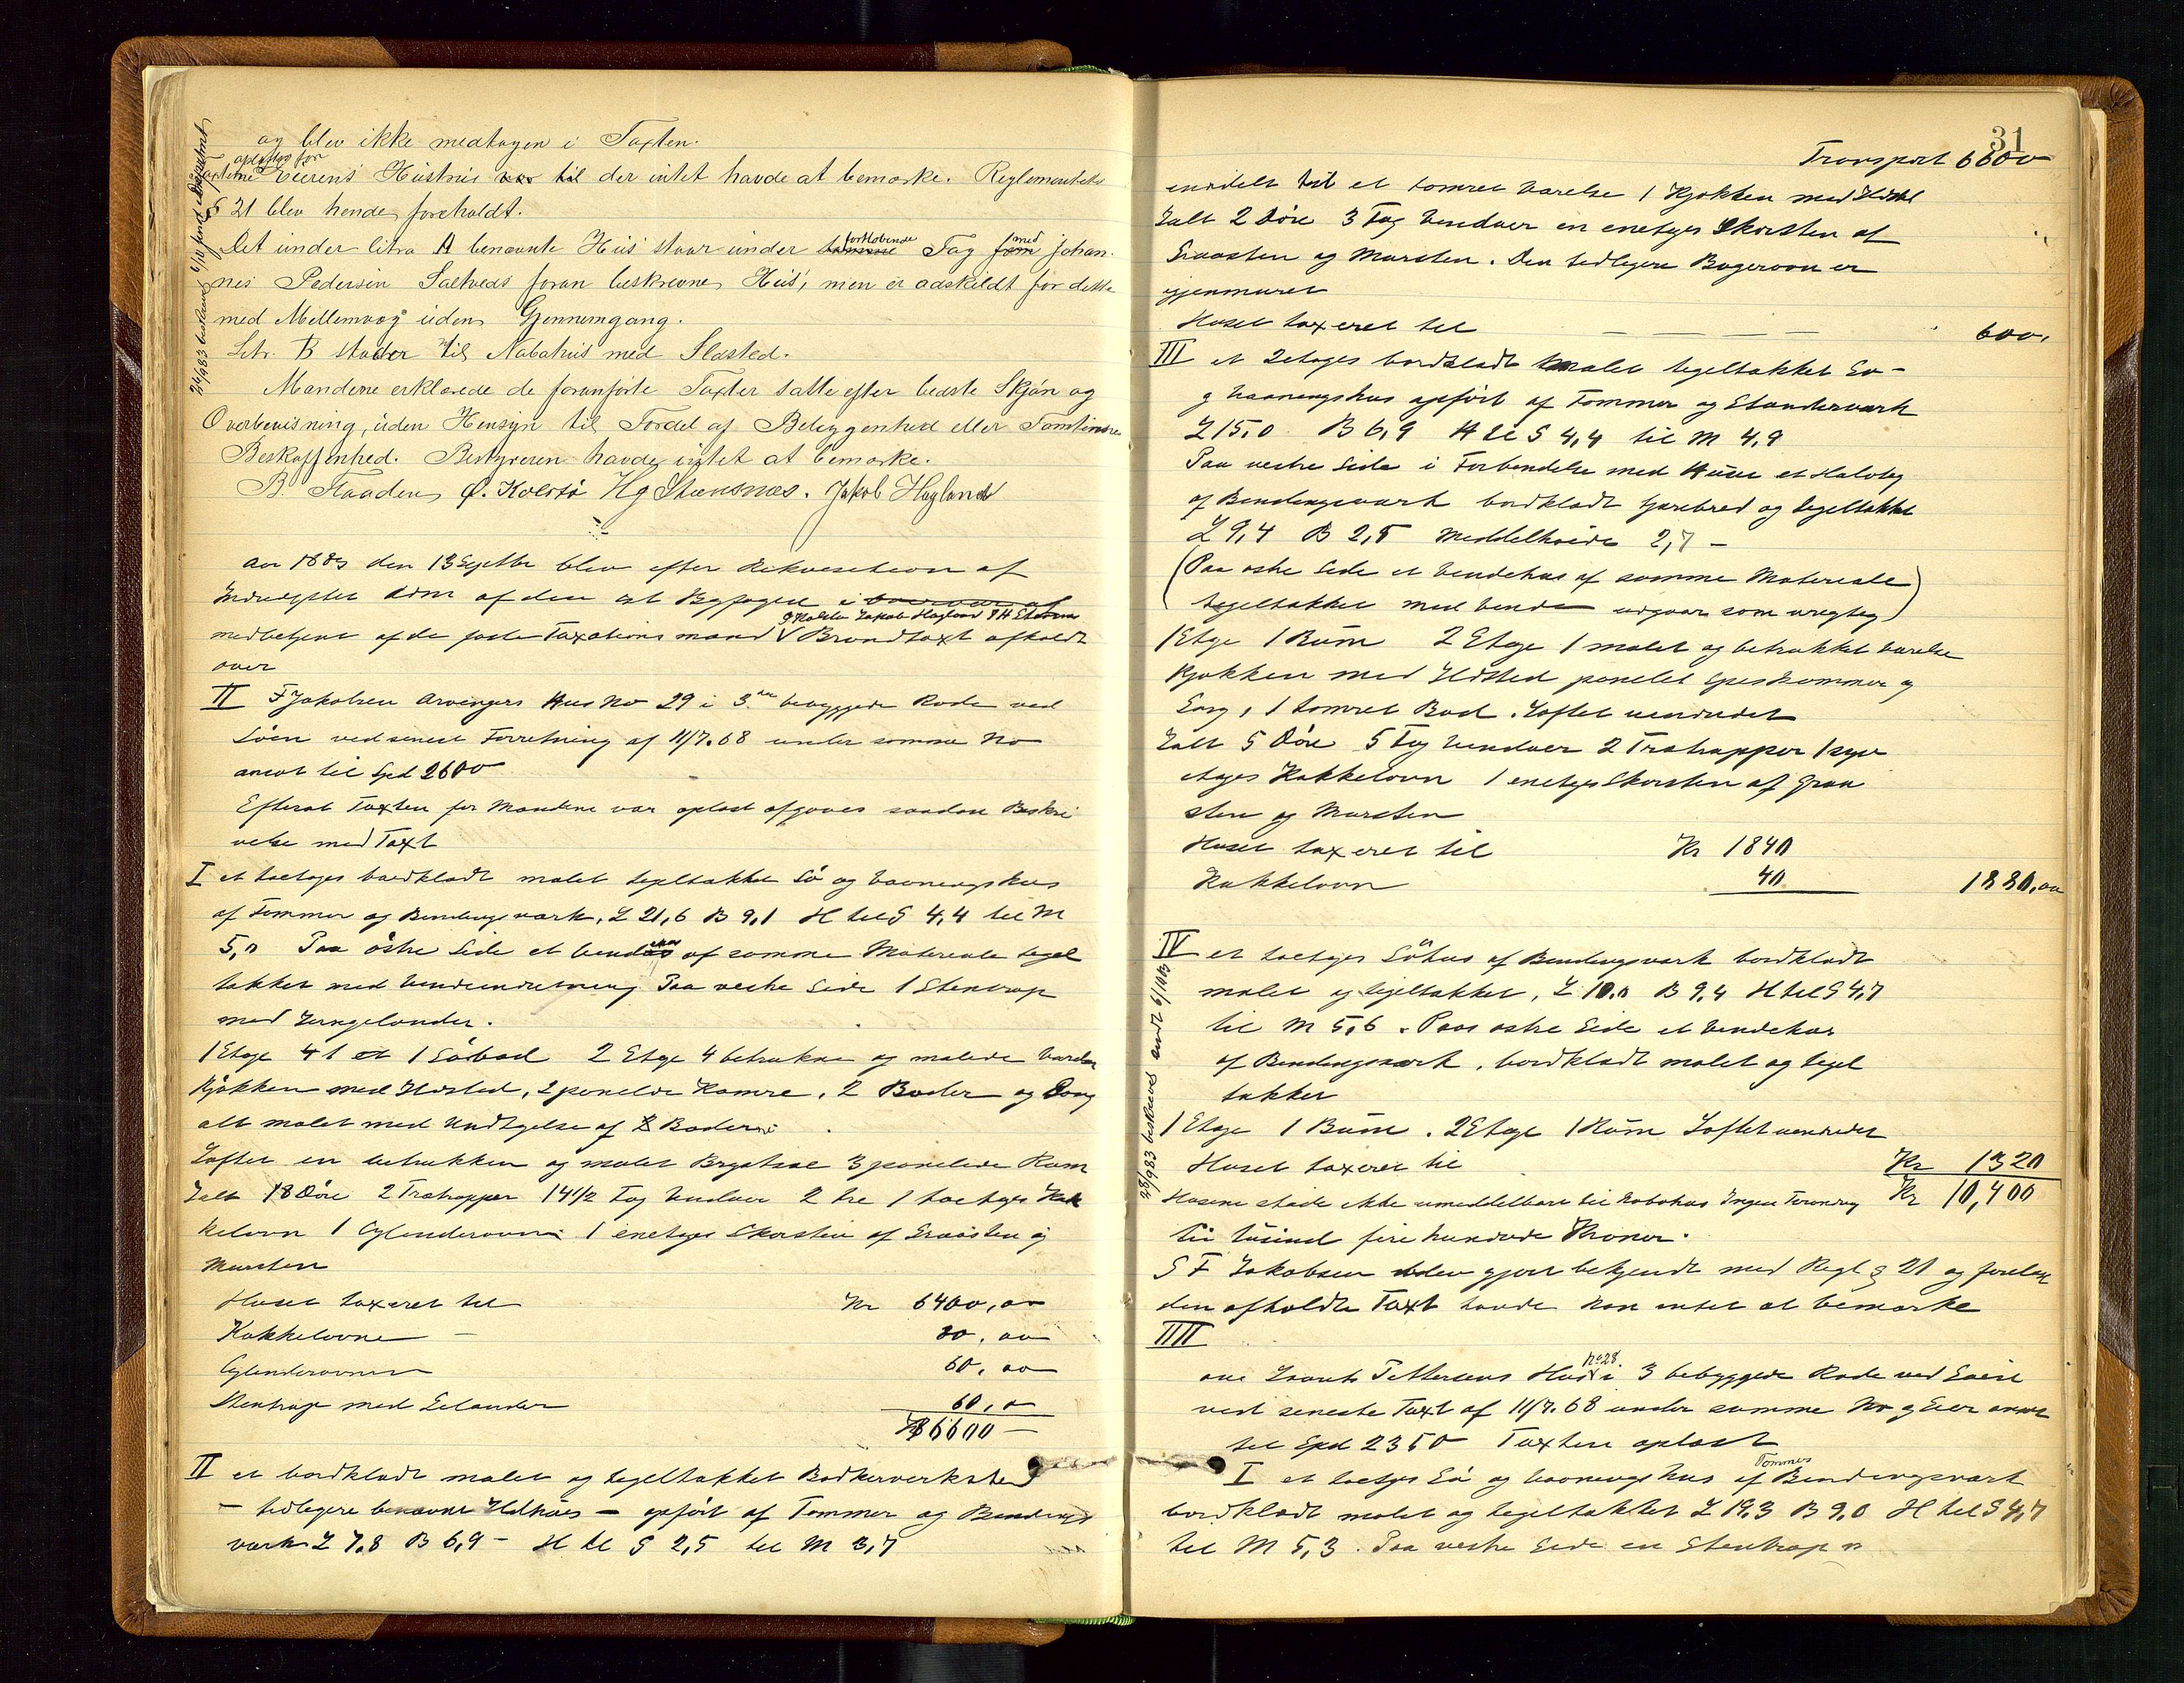 og blev ikke medtagen i Taxten.
Taxterne oplæstes for Eierens Hustrue der intet havde at bemærke. Reglementets
§ 21 blev hende foreholdt.
Det under litra A benævnte Hus staar under fortløbende Tag med Johan-
nes Pedersen Saltveds foran beskrevne Hus, men er adskildt for dette
med Mellemvæg uden Gjennemgang.
Litr. B støder til Nabohus med Ildsted.
Mændene erklærede de foranførte Taxter satte efter bedste Skjøn og
Overbevisning, uden Hensyn til Fordel af Beliggenhed eller Tomternes
Beskaffenhed. Bestyreren havde intet at bemærke.
B. Staaden O. Kolstø Hg Stensnæs. Jakob Hagland
Aar 1883 den 13 Septbr blev efter Rekvesition af
af den Byfoged
medbetjent af de faste Taxationsmænd O Kolstø Jakob Hagland Brandtaxt afholdt
over
II F Jakobsen Arvingers Hus No 29 i 3die bebyggede Rode ved
Søen ved seneste Forretning af 11/7.68 under samme No
ansat til Spd 2600
Efterat Taxten for Mændene var oplæst afgaves saadan Beskri
velse med Taxt
I et toetages bordklædt malet tegltakket Sø og Vaaningshus
af Tømmer og Bindingsværk, L 21,6 B 9,1 H til G 4,4 til M
5,0 Paa østre Side et Vindehus af samme Materiale tegel
takket med Vindeindretning Paa vestre Side 1 Stentrap
med Jerngelænder.
1 Etage 1 Søbod 2 Etage 4 betrukne og malede Værelser
Kjøkken med Ildsted, 2 panelde Kamre, 2 Boder og Gang
alt malet med Undtagelse af Boderne
Loftet en betrukken og malet Brystsal 3 panelede Rum
Ialt 18 Døre 2 Trætrapper 14 1/2 Fag Vinduer 2 tre 1 toetages Kak
kelovn 1 Cylinderovn 1 enetages Skorsten af Graasten og
Mursten
Huset taxeret til Kr 6400,00
Kakkelovne 80,00
Cylinderovnen 60,00
Stentrap med Gelænder 60,0
Kr 6600 —
II et bordklædt malet og tegeltakket Bødkerverksted
— tidligere benævnt Ildhuus — opført af Tømmer og Bindings
værk L 7,8 B 6,9 — H til G 2,5 til M 3,7
24/9 83 beskrevet
31
Transport 6600
inddelt til et tømret Værelse 1 Kjøkken med Ildsted
Ialt 2 Døre 3 Fag Vinduer en enetages Skorsten af
Graasten og Mursten. Den tidligere Bagerovn er
gjenmuret
Huset taxeret til — — — 600,
III et 2etages bordklædt malet tegeltakket Sø-
g Vaaningshus opført af Tømmer og Standerværk
L 15,0 B 6,9 H til G 4,4 til M 4,9
Paa vestre Side i Forbindelse med Huset et Halvtag
af Bindingsværk bordklædt tjærebred og tegeltakket
L 9,4 B 2,5 Middelhøide 2,7 —
(Paa østre Side et Vindehus af samme Materiale
tegeltakket med Vinde udgaar som uvegtig)
1 Etage 1 Rum 2 Etage 1 malet og betrukket Værelse
Kjøkken med Ildsted panelet Spiskammer og
Gang, 1 tømret Bod. Loftet uindredet
Ialt 5 Døre 5 Fag Vinduer 2 Trætrapper 1
etages Kakkelovn 1 enetages Skorsten af Graa
sten og Mursten
Huset taxeret til Kr 1840
Kakkelovn 40 1880,00
IV et toetages Søhus af Bindingsværk bordklædt
malet og tegeltakket, L 10,0 B 9,4 H til G 4,7
til M 5,6. Paa østre Side et Vindehus
af Bindingsværk, bordklædt malet og tegel
takket
1 Etage 1 Rum. 2 Etage 1 Rum Loftet uindredet
Huset taxeret til Kr 1320
Husene støde ikke umiddelbart til Nabohus Ingen Forandring Kr 10,400
Ti tusind fire hundrede Kroner.
S F Jakobsen blev gjort bekjendt med Regl § 21 og
den afholdte Taxt havde han intet at bemærke
IIII
Pettersens Hus No 28. i 3 bebyggede Rode ved Søen
ved seneste Taxt af 11/7.68 under samme No og Eier ansat
til Spd 2350 Taxten oplæst
I et toetages Sø og Vaaningshus af Tømmer Bindingsværk
bordklædt malet og tegeltakket L 19,3 B 9,0 H til G 4,7
til M 5,3. Paa vestre Side en Stentrap
28/9 83 beskrevet sendt 6/10 83